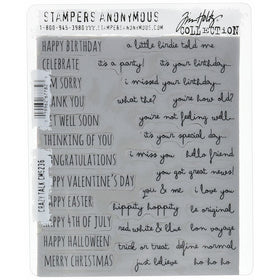 STAMPERS ANONYMOUS
Tim Holtz
COLLECTION
HAPPY BIRTHDAY
a little birdie told me
CELEBRATE
it's a party!
it's your birthday...
I'M SORRY
i missed your birthday...
THANK YOU
what the?
you're how old?
GET WELL SOON
you're not feeling well
THINKING OF YOU
it's your special day...
CONGRATULATIONS
i miss you
hello friend
you got great news!
HAPPY VALENTINE'S DAY
you & me
i love you
HAPPY EASTER
hippity hoppity
be original
HAPPY 4TH OF JULY
red white & blue
bon voyage
HAPPY HALLOWEEN
trick or treat
define normal
MERRY CHRISTMAS
just believe
ho ho ho
CRAZY TALK CMS236